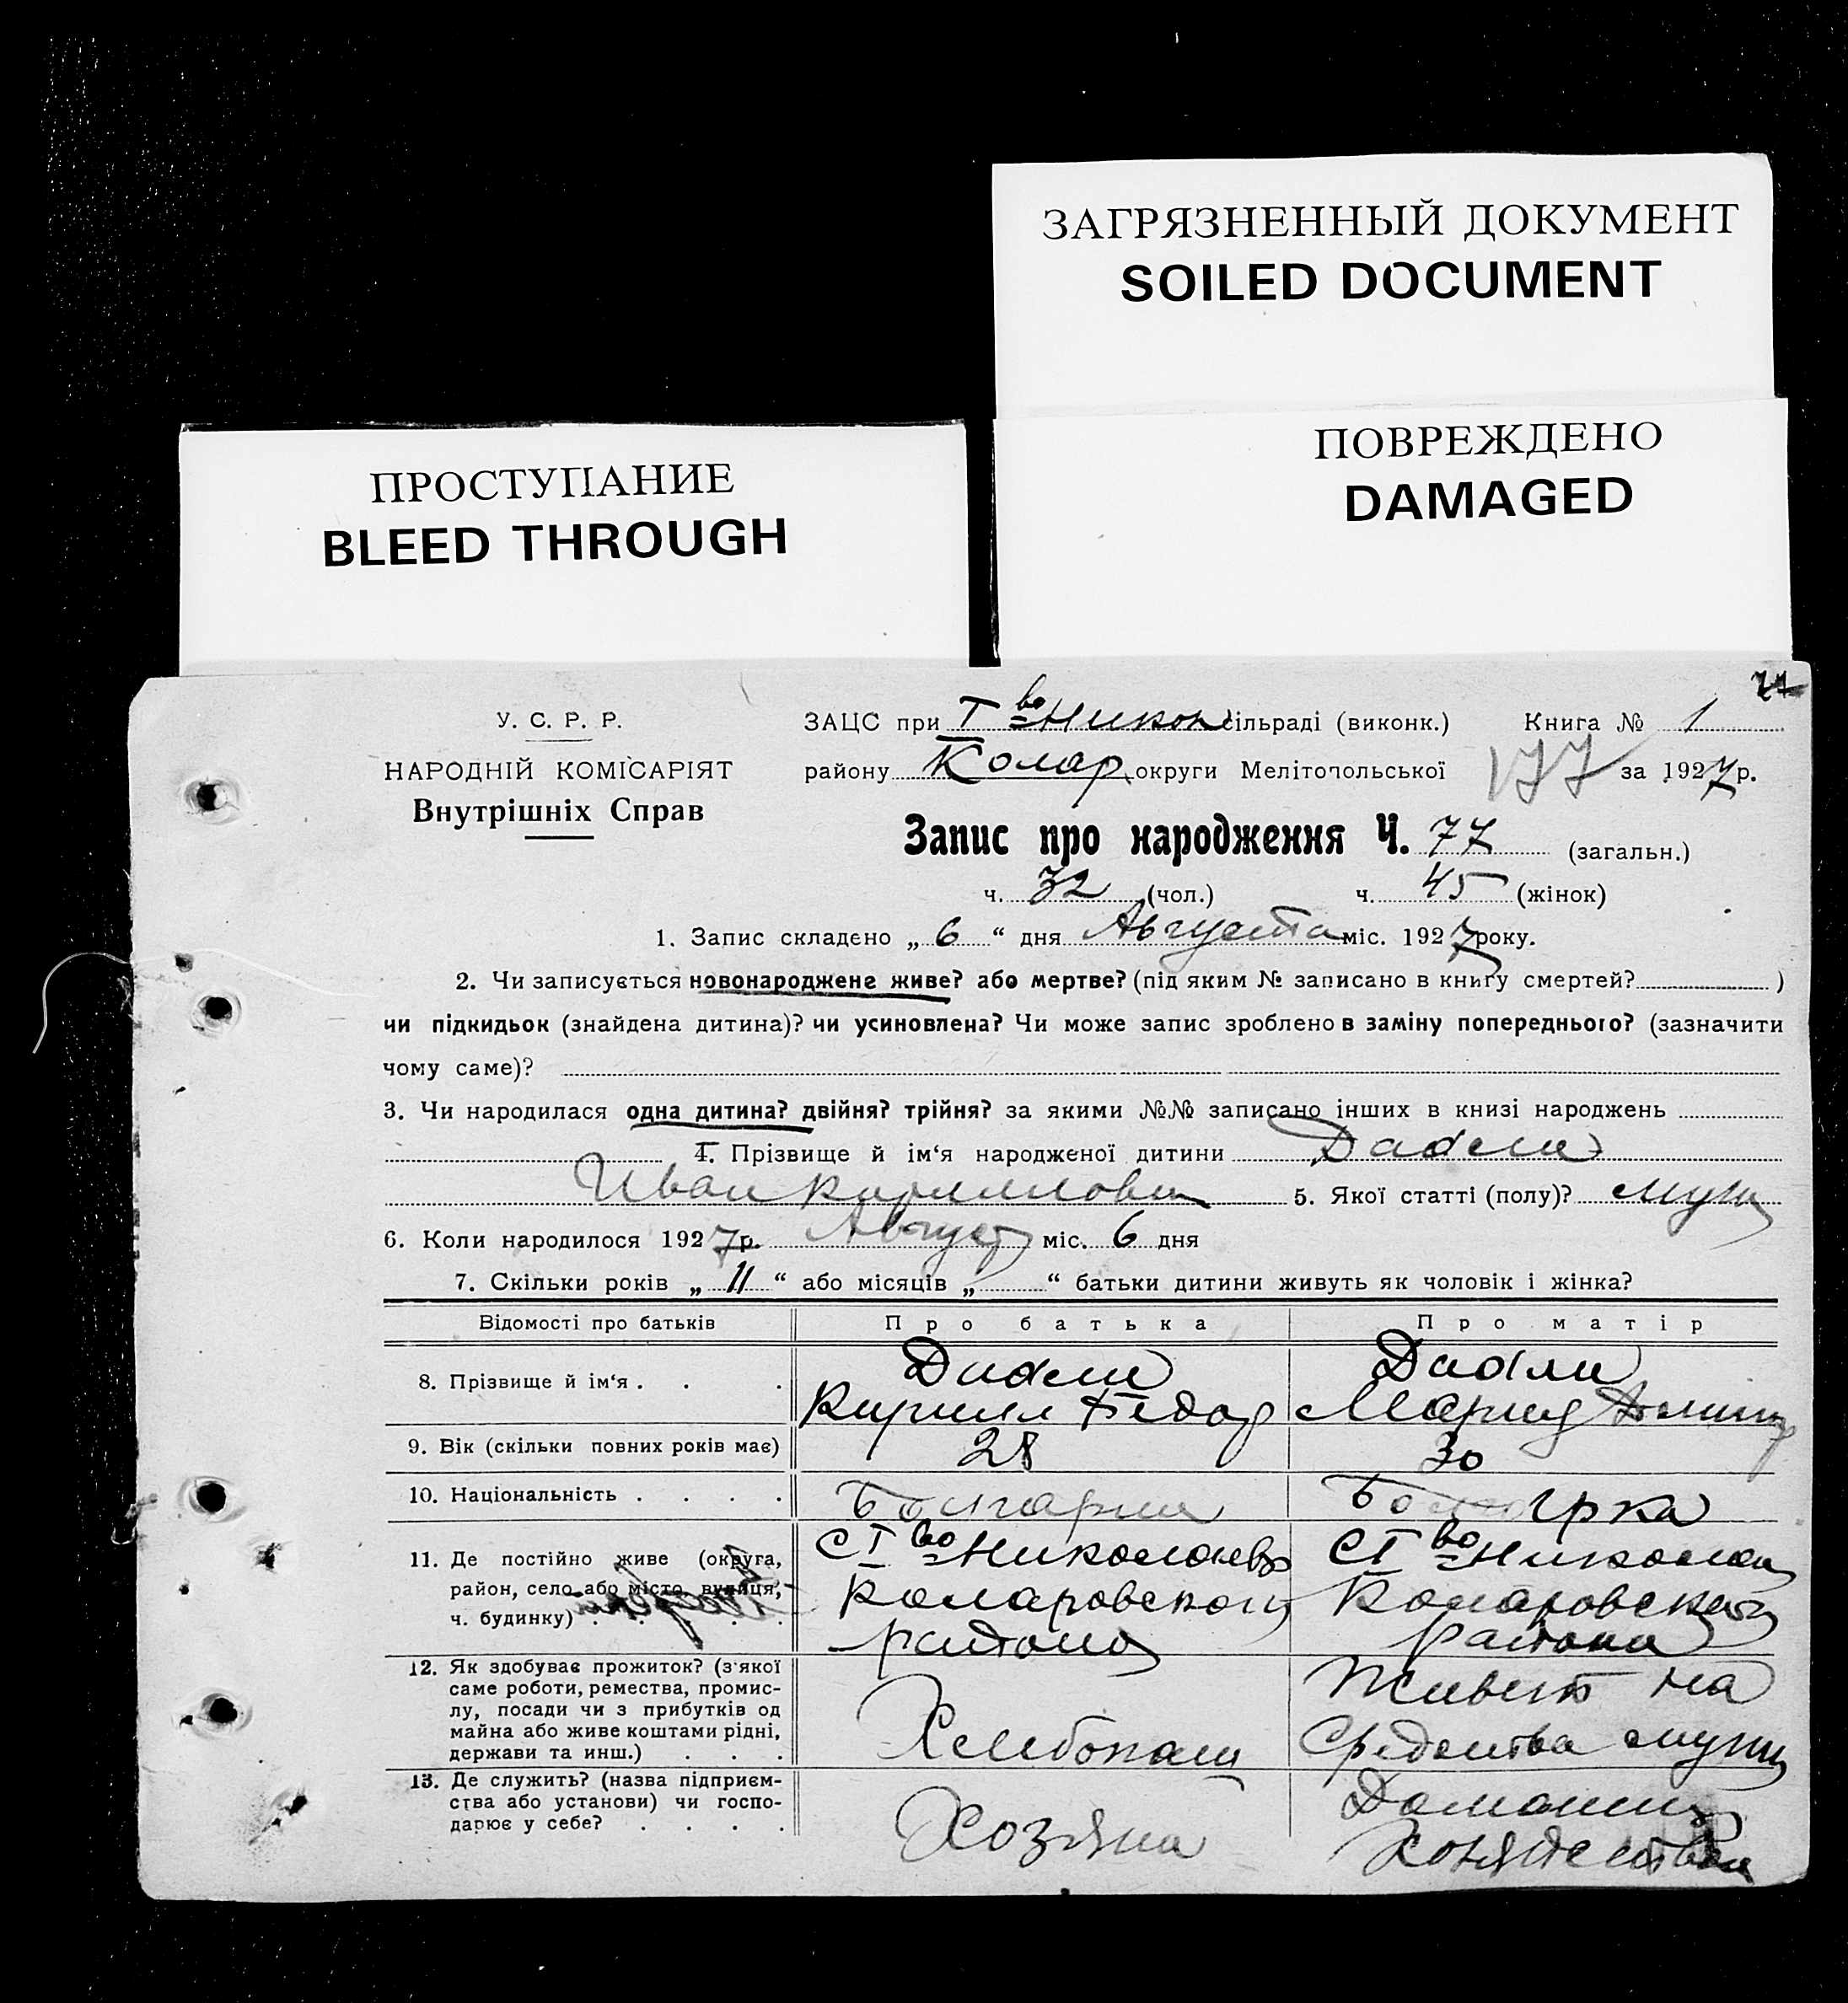 ЗАГРЯЗНЕННЫЙ ДОКУМЕНТ
SOILED DOCUMENT
ПРОСТУПАНИЕ
BLEED THROUGH
ПОВРЕЖДЕНО
DAMAGED
77
У. С. Р. Р.
НАРОДНІЙ КОМІСАРІЯТ
Внутрішніх Справ
ЗАЦС при Iво Никол сільраді (виконк.) Книга № 1
району Колар округи Мелітопольської 177 за 1927 р.
Запис про народження Ч. 77 (загальн.)
ч. 32 (чол.) ч. 45 (жінок)
1. Запис складено „ 6 “ дня Августа міс. 1927 року.
2. Чи записується новонароджене живе? або мертве? (під яким № записано в книгу смертей? )
чи підкидьок (знайдена дитина)? чи усиновлена? Чи може запис зроблено в заміну попереднього? (зазначити
чому саме)?
3. Чи народилася одна дитина? двійня? трійня? за якими №№ записано інших в книзі народжень
4. Прізвище й ім‘я народженої дитини
Иван Кириллови 5. Якої статті (полу)? муж
6. Коли народилося 1927 р. Август міс. 6 дня
7. Скільки років „ 11 “ або місяців „ “ батьки дитини живуть як чоловік і жінка?
Відомості про батьків Про батька Про матір
8. Прізвище й ім‘я . . .
Кирилл Федор Мария
9. Вік (скільки повних років має) 28 30
10. Національність . . . . Болгарин Болгарка
11. Де постійно живе (округа,
район, село або місто, вулиця,
ч. будинку) . . . . .
С Iво Николаевк С Iво Николаев
Коларовского Коларовского
района района
12. Як здобуває прожиток? (з якої
саме роботи, ремества, промис-
лу, посади чи з прибутків од
майна або живе коштами рідні,
держави та инш.) . . .
Хлебопаш
Живет на
средства мужа
13. Де служить? (назва підприєм-
ства або установи) чи госпо-
дарює у себе? . . . .
Хозяин
Домашн